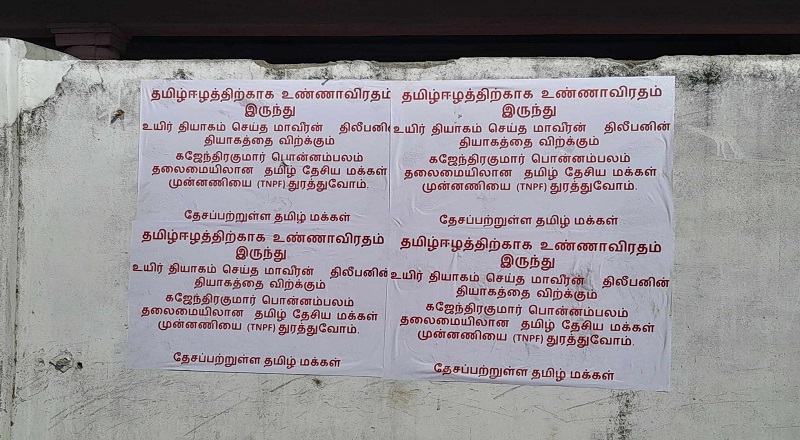 தமிழ்ஈழத்திற்காக உண்ணாவிரதம்
இருந்து
உயிர் தியாகம் செய்த மாவீரன் திலீபனின்
தியாகத்தை விற்க்கும்
கஜேந்திரகுமார் பொன்னம்பலம்
தலைமையிலான தமிழ் தேசிய மக்கள்
முன்னணியை (TNPF) துரத்துவோம்.
தேசப்பற்றுள்ள தமிழ் மக்கள்
தமிழ்ஈழத்திற்காக உண்ணாவிரதம்
இருந்து
உயிர் தியாகம் செய்த மாவீரன் திலீபனின்
தியாகத்தை விற்க்கும்
கஜேந்திரகுமார் பொன்னம்பலம்
தலைமையிலான தமிழ் தேசிய மக்கள்
முன்னணியை (TNPF) துரத்துவோம்.
தேசப்பற்றுள்ள தமிழ் மக்கள்
தமிழ்ஈழத்திற்காக உண்ணாவிரதம்
இருந்து
உயிர் தியாகம் செய்த மாவீரன் திலீபனின்
தியாகத்தை விற்க்கும்
கஜேந்திரகுமார் பொன்னம்பலம்
தலைமையிலான தமிழ் தேசிய மக்கள்
முன்னணியை (TNPF) துரத்துவோம்.
தேசப்பற்றுள்ள தமிழ் மக்கள்
தமிழ்ஈழத்திற்காக உண்ணாவிரதம்
இருந்து
உயிர் தியாகம் செய்த மாவீரன் திலீபனின்
தியாகத்தை விற்க்கும்
கஜேந்திரகுமார் பொன்னம்பலம்
தலைமையிலான தமிழ் தேசிய மக்கள்
முன்னணியை (TNPF) துரத்துவோம்.
தேசப்பற்றுள்ள தமிழ் மக்கள்